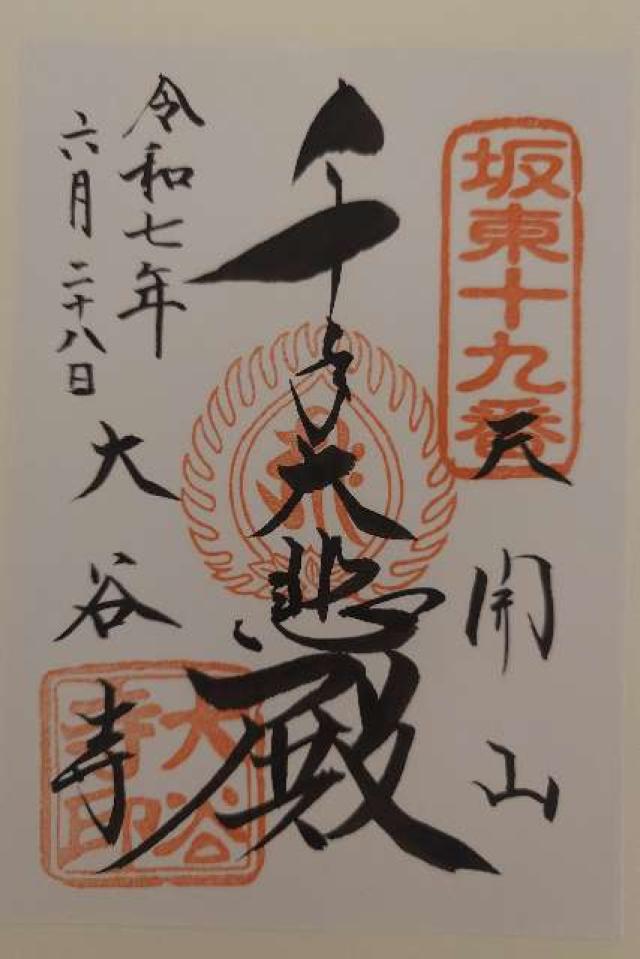 坂東十九番
天開山
千手大悲殿
大谷寺
令和七年
六月二十八日
大谷寺印